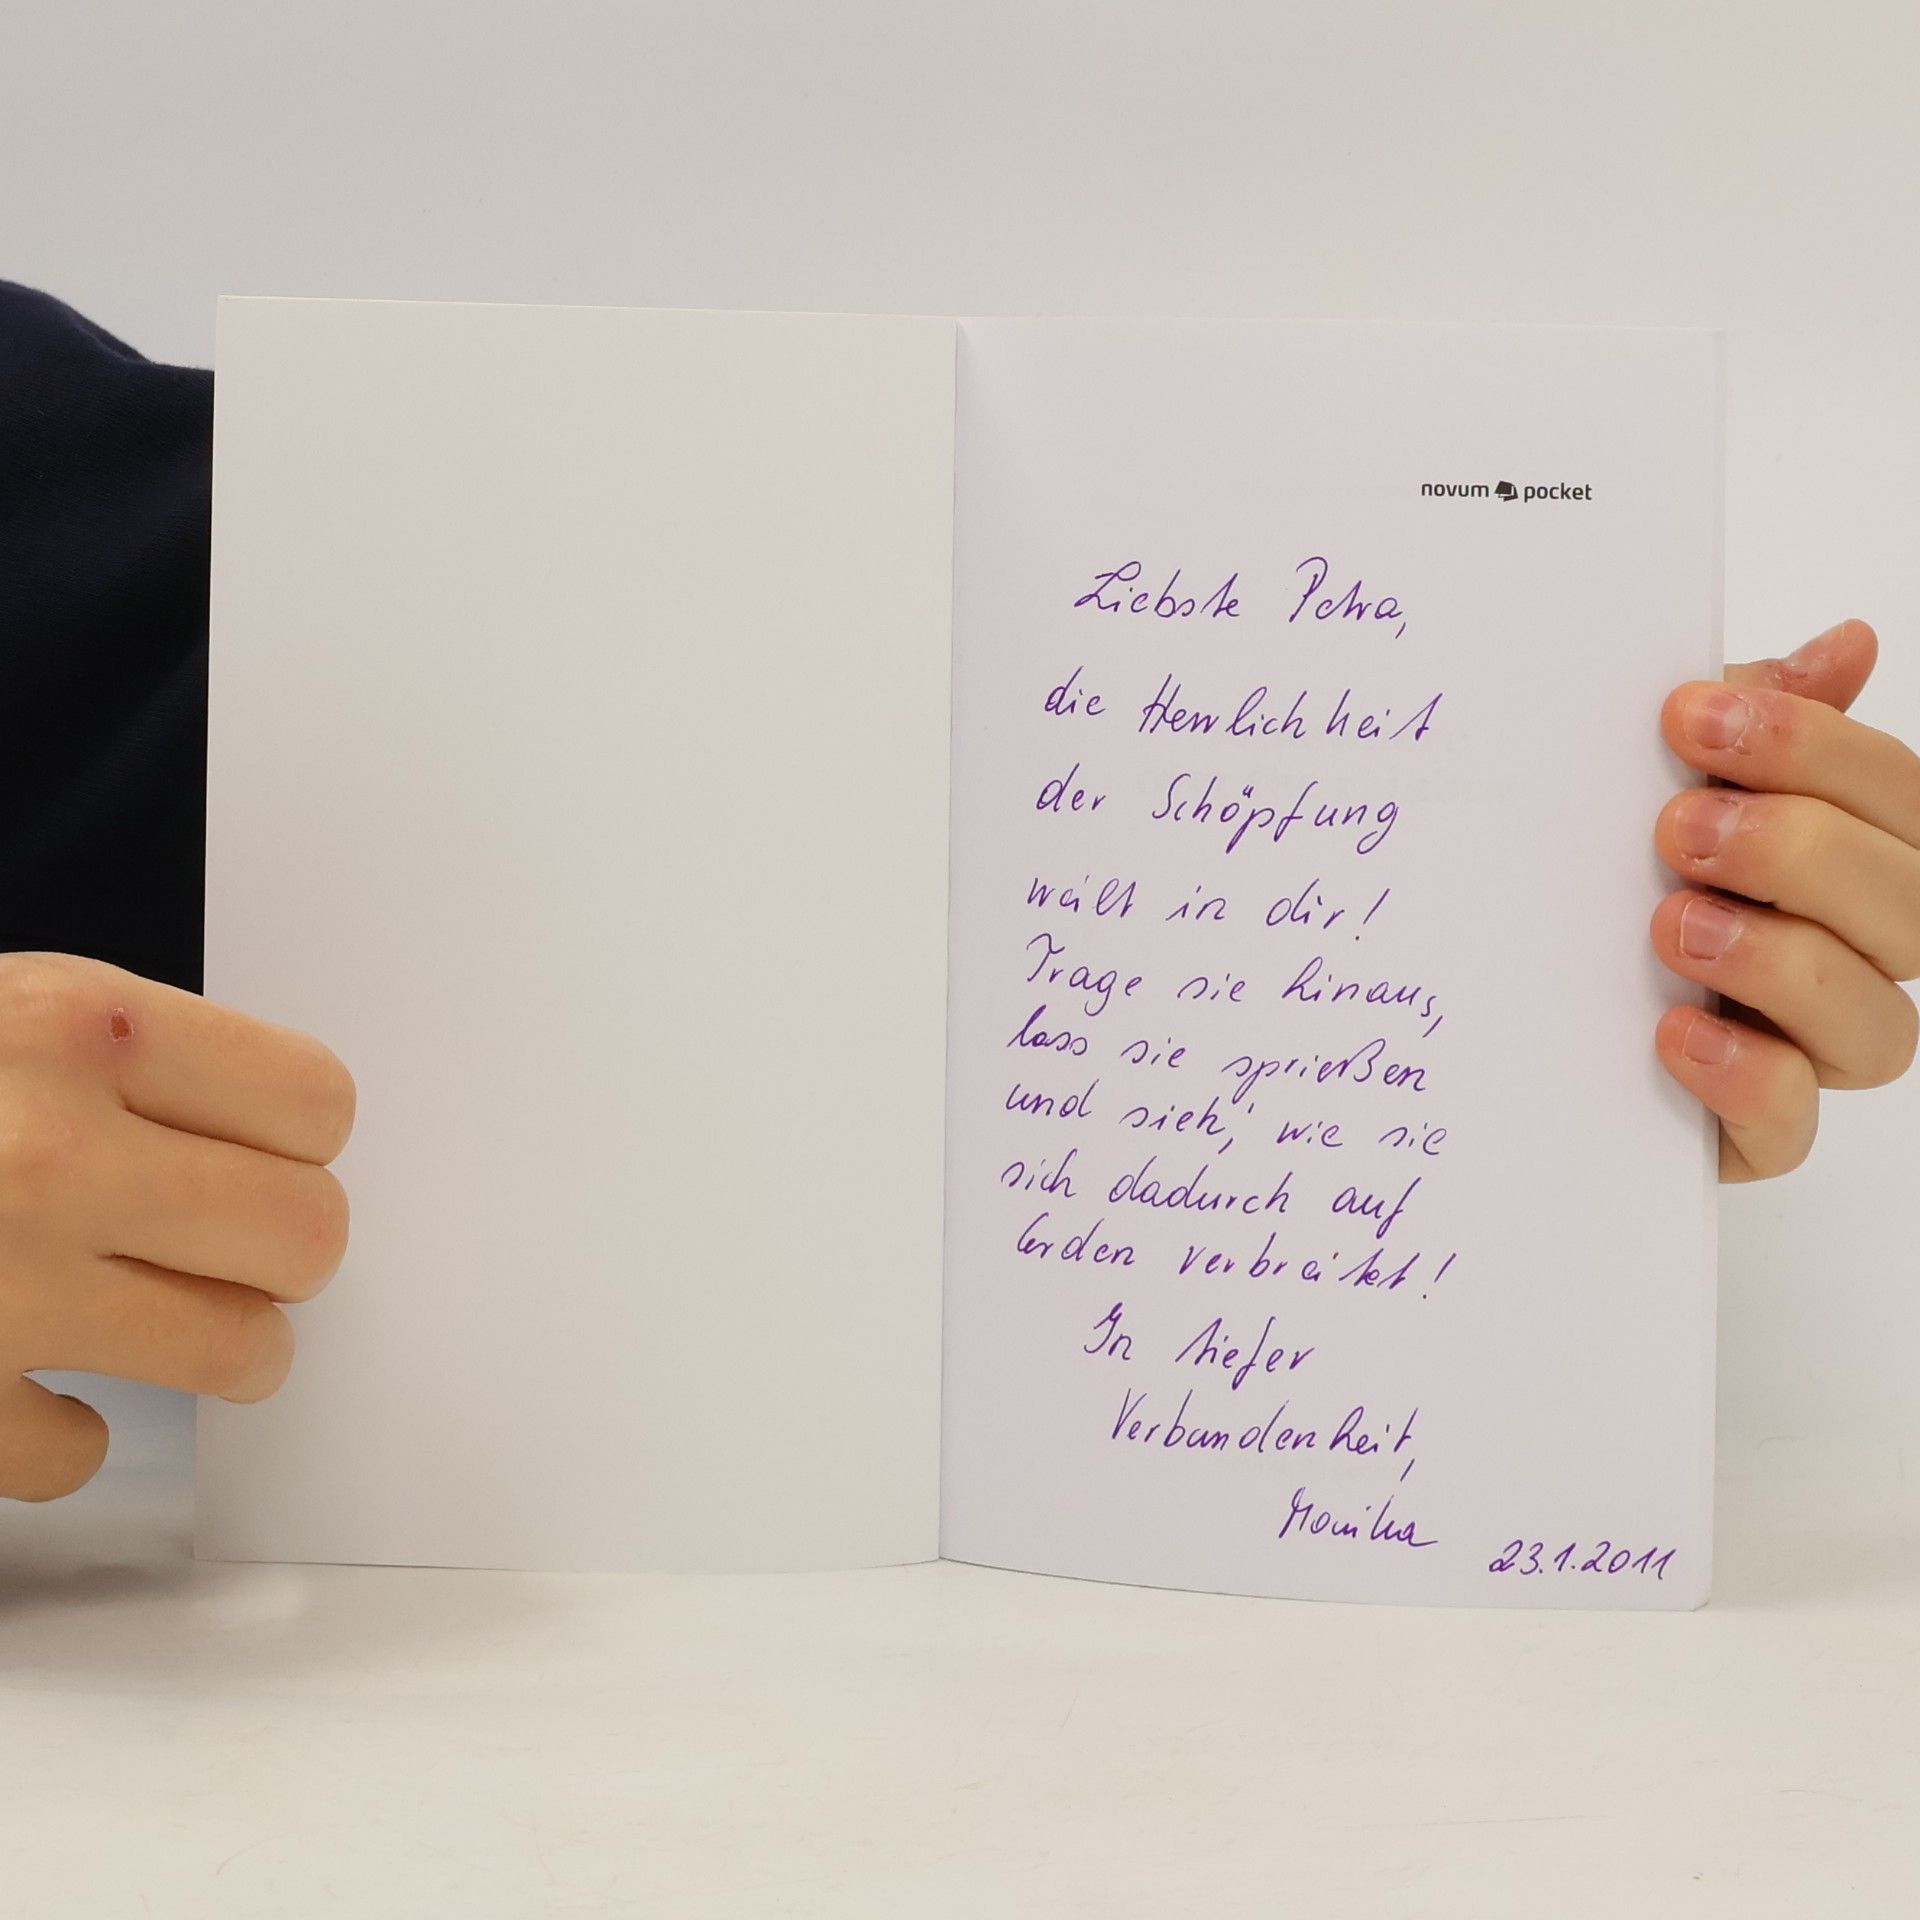 novum pocket
Liebste Petra,
die Herrlichkeit
der Schöpfung
weilt in dir!
Trage sie hinaus,
lass sie sprießen
und sieh, wie sie
sich dadurch auf
Erden verbreitet!
In tiefer
Verbundenheit,
Monika
23.1.2011